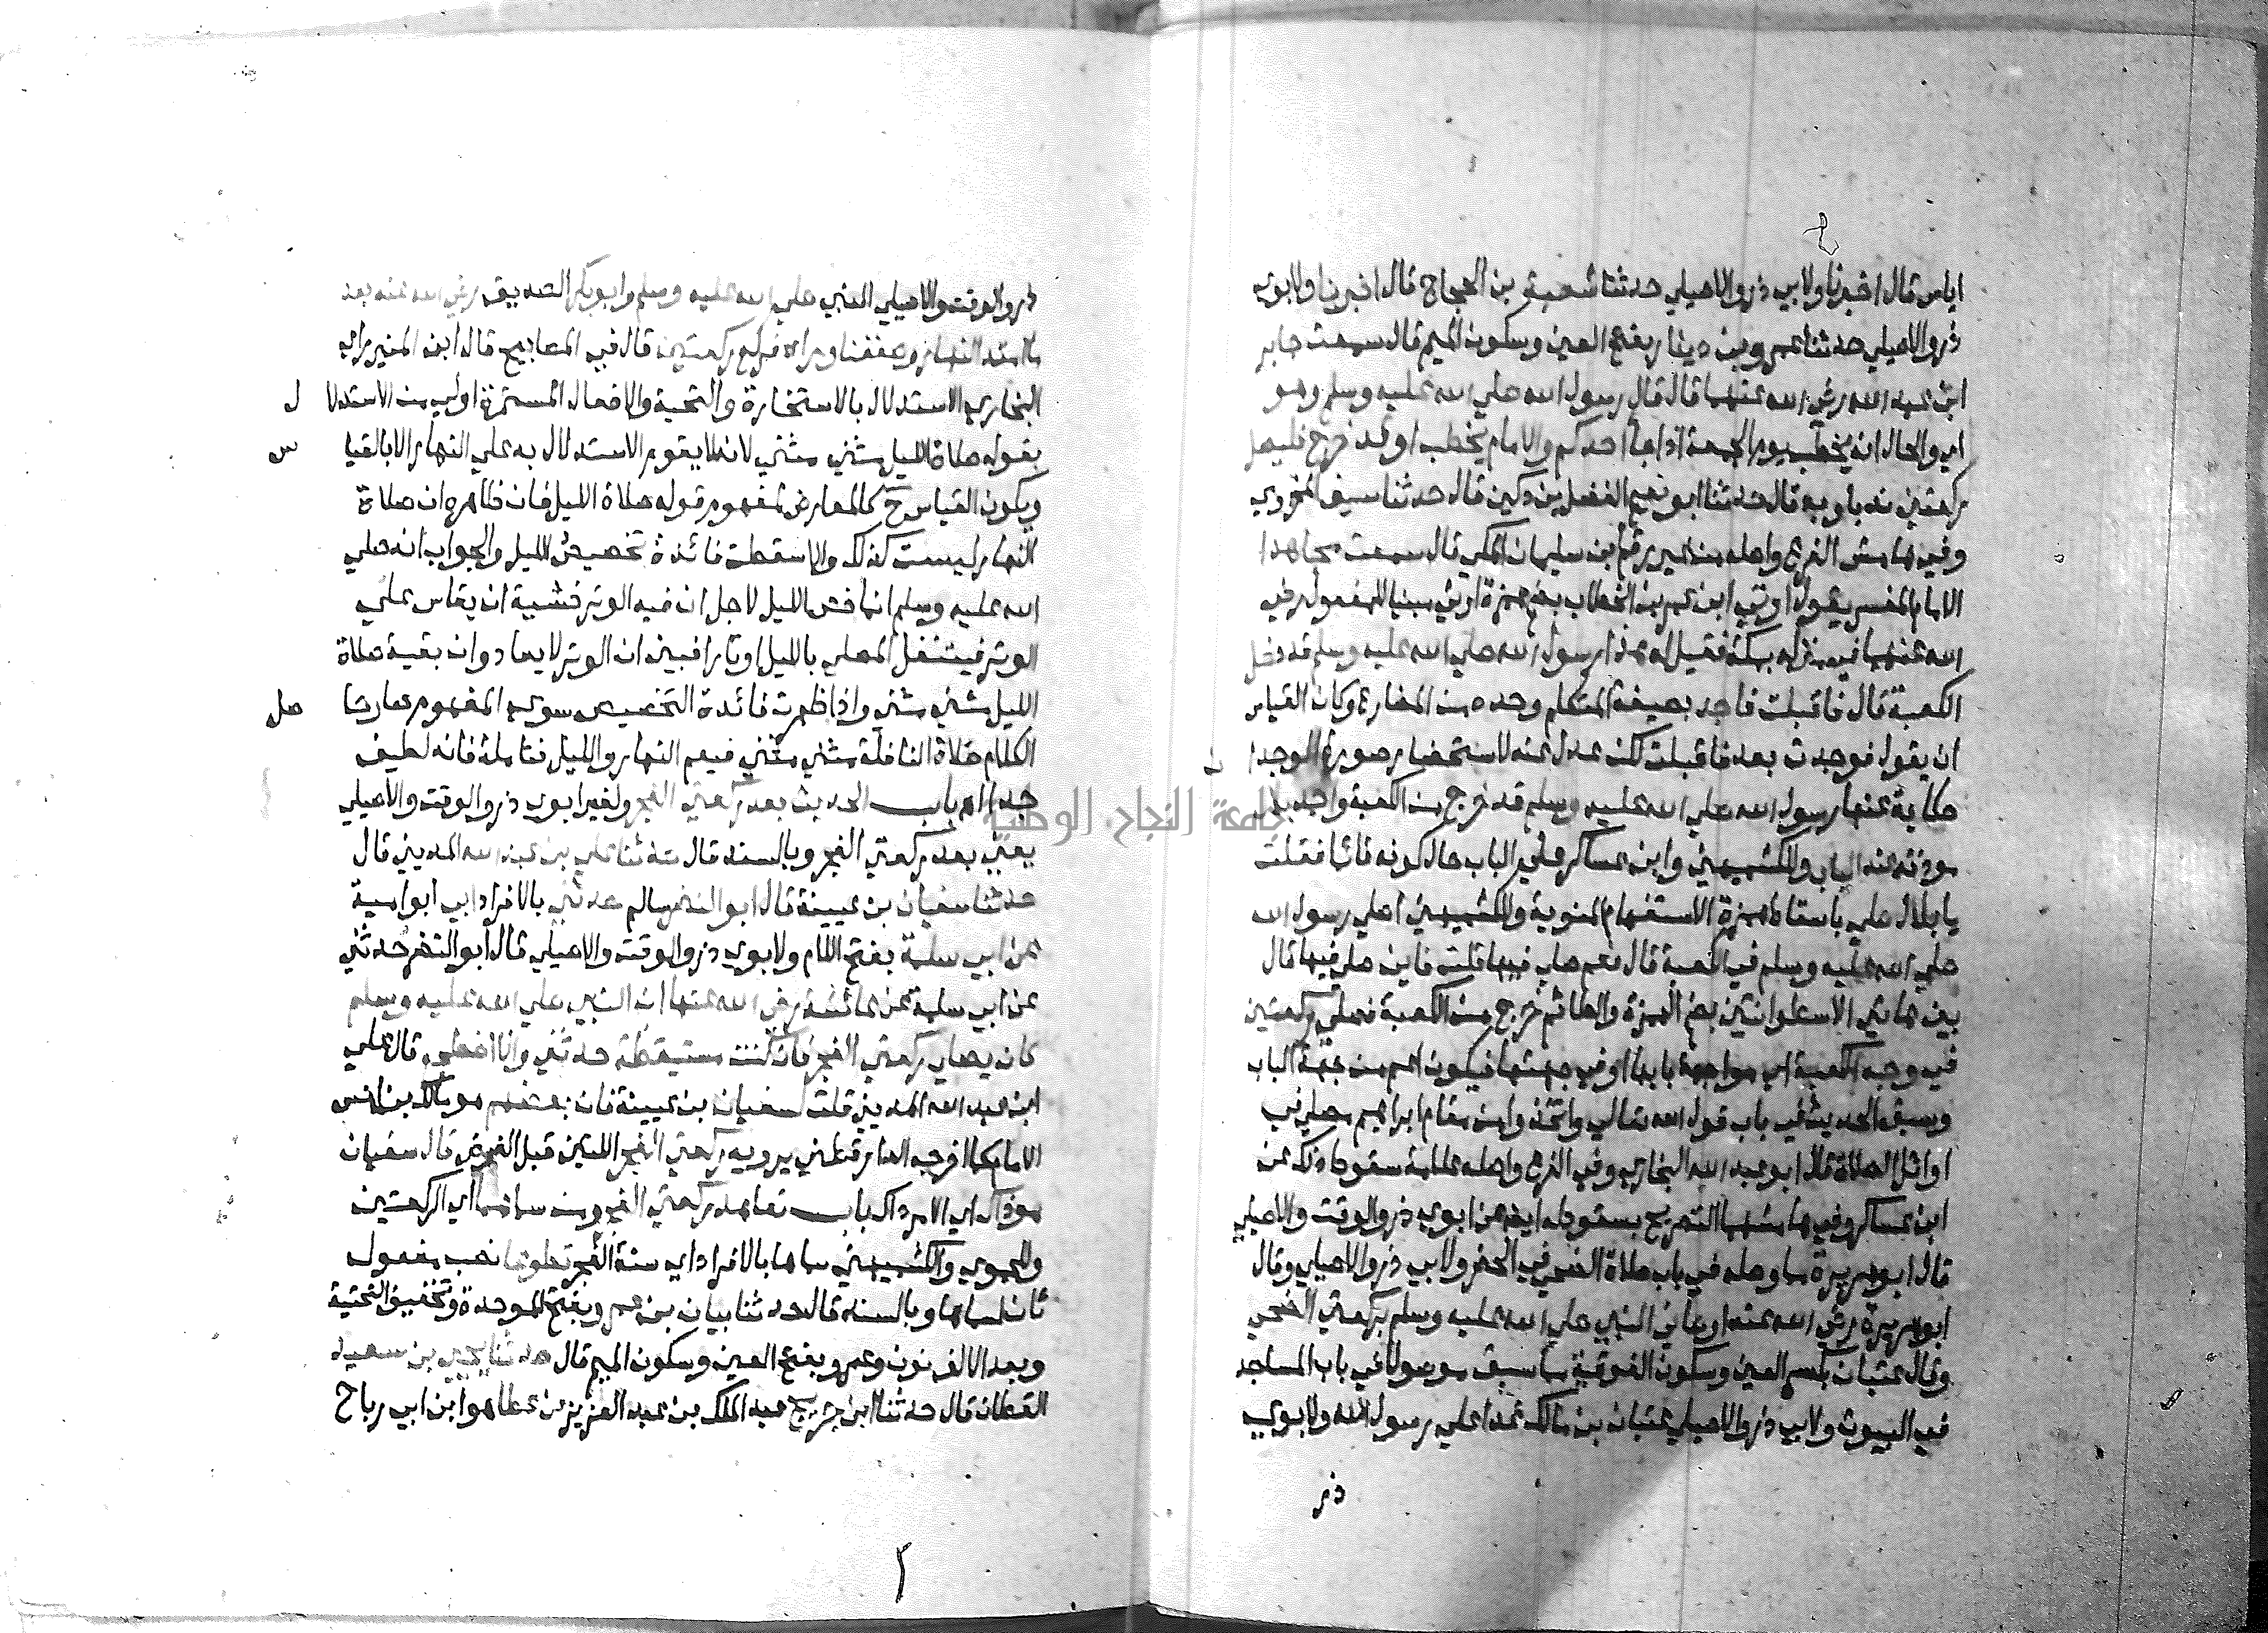 اياس قال اخبرنا ولابي ذر والاصيلي حدثنا شعبة بن الحجاج قال اخبرنا ولابوي
ذر والاصيلي حدثنا عمرو بن دينار بفتح العين وسكون الميم قال سمعت جابر
ابن عبد الله رضي الله عنهما قال قال رسول الله صلي الله عليه وسلم وهو
اي والحال انه يخطب يوم الجمعة اذا جا احدكم والامام يخطب او قد خرج فليصل
ركعتين ندبا وبه قال حدثنا ابو نعيم الفضل بن دكين قال حدثنا سيف المخزومي
وفي هامش الفرع واصله من غير رقم بن سليمان المكي قال سمعت مجاهدا
الامام المفسر يقول اوتي ابن عمر بن الخطاب بضم همزة اوتي مبنيا للمفعول رضي
الله عنهما في منزله بمكة فقيل له هذا رسول الله صلي الله عليه وسلم قد دخل
الكعبة قال فاقبلت فاجد بصيغة المتكلم وحده من المضارع وكان القياس
ان يقول فوجدت بعد فاقبلت لكن عدل عنه لاستحضار صورة الوجدا ن
حكاية عنها رسول الله صلي الله عليه وسلم قد خرج من الكعبة واجد بلال
موذنه عند الباب وللكشميهني وابن عساكر علي الباب حال كونه قائما فقلت
يا بلال صلي باسقاط همزة الاستفهام المنوية وللكشميهني اصلي رسول الله
صلي الله عليه وسلم في الكعبة قال نعم صلي فيها قلت فاين صلي فيها قال
بين هاتين الاسطوانتين بضم الهمزة والطا ثم خرج من الكعبة فصلي ركعتين
في وجه الكعبة اي مواجهة بابها او في جهتها فيكون اعم من جهة الباب
وسبق الحديث في باب قول الله تعالي واتخذوا من مقام ابراهيم مصلي في
اوائل الصلاة قال ابو عبد الله البخاري وفي الفرع واصله علامة سقوط ذلك عن
ابن عساكر وفي هامشهما التصريح بسقوطه ايضا عن ابوي ذر والوقت والاصيلي
قال ابو هريرة مما وصله في باب صلاة الضحي في الحضر ولابي ذر والاصيلي وقال
ابو هريرة رضي الله عنه اوصاني النبي صلي الله عليه وسلم بركعتي الضحي
وقال عتبان بكسر العين وسكون الفوقية مما سبق موصولا في باب المساجد
في البيوت ولابي ذر والاصيلي عتبان بن مالك غدا علي رسول الله ولابوي
ذر
ذر والوقت والاصيلي النبي صلي الله عليه وسلم وابو بكر الصديق رضي الله عنه بعد
ما امتد النهار وصففنا وراه فركع ركعتين قال في المصابيح قال ابن المنير راي
البخاري الاستدلال بالاستخارة والتحية والافعال المستمرة اولي من الاستدلا ل
بقوله صلاة الليل مثني مثني لانه لا يقوم الاستدلال به علي النهار الا بالقيا س
ويكون القياس ح كالمعارض لمفهوم قوله صلاة الليل فان ظاهره ان صلاة
النهار ليست كذلك والا سقطت فائدة تخصيص الليل والجواب انه صلي
الله عليه وسلم انما خص الليل لاجل ان فيه الوتر خشية ان يقاس علي
الوتر فيتنفل المصلي بالليل اوتارا فبين ان الوتر لا يعاد وان بقية صلاة
الليل مثني مثني واذا ظهرت فائدة التخصيص سوي المفهوم صار حا صل
الكلام صلاة النافلة مثني مثني فيعم النهار والليل فتامله فانه لطيف
جدا اه باب الحديث بعد ركعتي الفجر ولغير ابوي ذر والوقت والاصيلي
يعني بعد ركعتي الفجر وبالسند قال حدثنا علي بن عبد الله المديني قال
حدثنا سفيان بن عيينة قال ابو النضر سالم حدثني بالافراد ابي ابو امية
عن ابي سلمة بفتح اللام ولابوي ذر والوقت والاصيلي قال ابو النضر حدثني
عن ابي سلمة عن عائشة رضي الله عنها ان النبي صلي الله عليه وسلم
كان يصلي ركعتي الفجر فان كنت مستيقظة حدثني والا اضطجع قال علي
ابن عبد الله المديني قلت لسفيان بن عيينة فان بعضهم هو مالك بن انس
الامام كما اخرجه الدارقطني يرويه ركعتي الفجر اللتين قبل الفرض قال سفيان
هو ذاك اي الامر ذاك باب تعاهد ركعتي الفجر ومن سماهما اي الركعتين
وللحموي والكشميهني سماها بالافراد اي سنة الفجر تطوعا نصب مفعول
ثان لسماها وبالسند قال حدثنا بيان بن عمرو بفتح الموحدة وتخفيف التحتية
وبعد الالف نون وعمرو بفتح العين وسكون الميم قال حدثنا يحيي بن سعيد
القطان قال حدثنا ابن جريج عبد الملك بن عبد العزيز عن عطا هو ابن ابي رباح
جامعة النجاح الوطنية